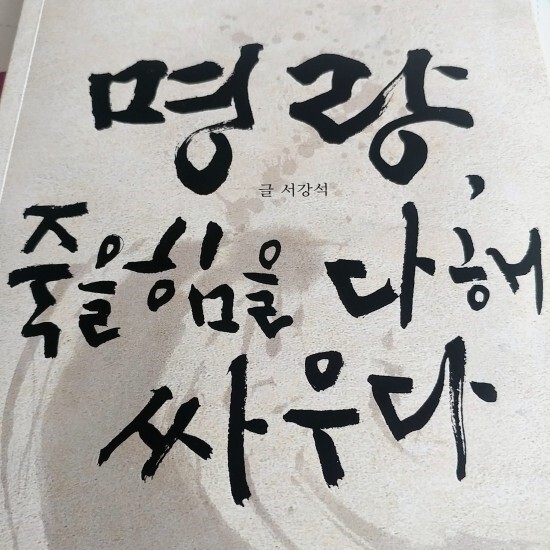 명량,
글 서강석
죽을힘을 다해
싸우다